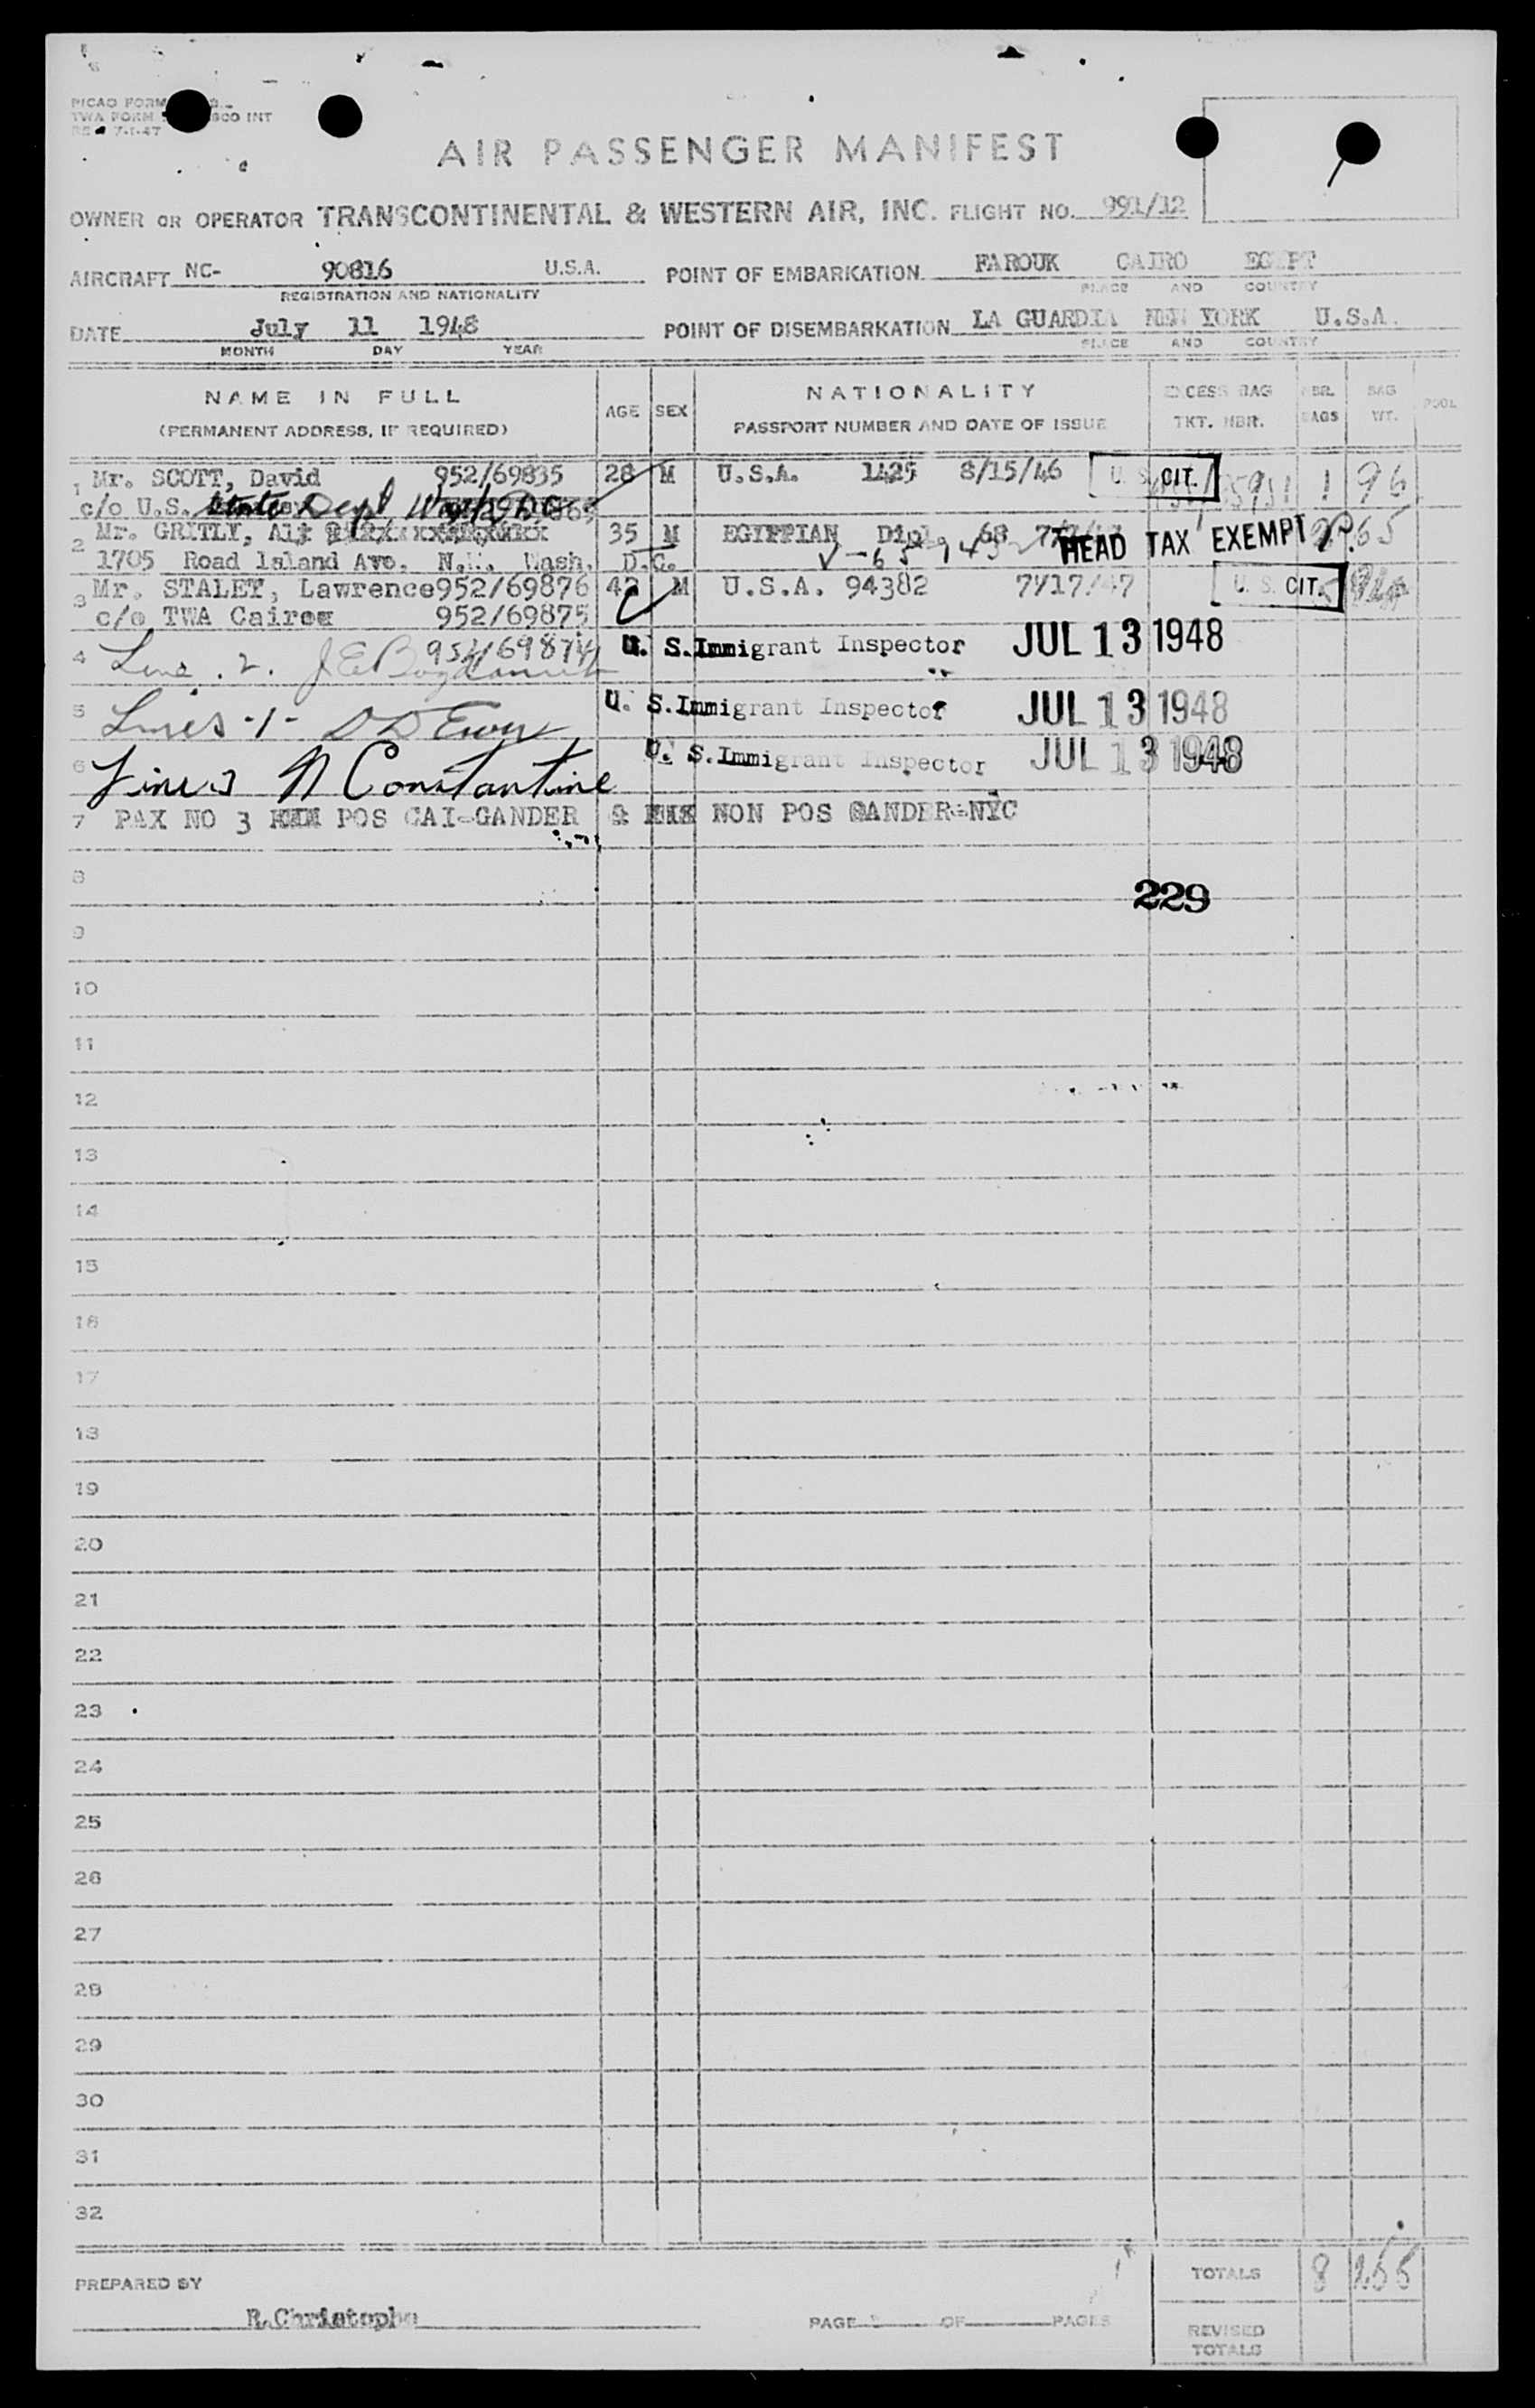 PICAO FORM
TWA FORM SCO INT
7-1-47
AIR PASSENGER MANIFEST
OWNER OR OPERATOR TRANSCONTINENTAL & WESTERN AIR, INC. FLIGHT NO. 991/12
AIRCRAFT NC- 90816 U.S.A. POINT OF EMBARKATION FAROUK CAIRO EGYPT
REGISTRATION AND NATIONALITY PLACE AND COUNTRY
DATE July 11 1948 POINT OF DISEMBARKATION LA GUARDIA NEW YORK U.S.A.
MONTH DAY YEAR PLACE AND COUNTRY
NAME IN FULL AGE SEX NATIONALITY EXCESS BAG NBR. BAG POOL
(PERMANENT ADDRESS, IF REQUIRED) PASSPORT NUMBER AND DATE OF ISSUE TKT. NBR. BAGS WT.
1 Mr. SCOTT, David 952/69835 28 M U.S.A. 1425 8/15/46 U. S. CIT. 1 96
c/o U.S. State Dept Wash DC
2 Mr. GRITLY, Ali 35 M EGYPTIAN Dipl. 68 HEAD TAX EXEMPT 65
1705 Road Island Ave. N.W. Wash. D.C.
3 Mr. STALET, Lawrence 952/69876 42 M U.S.A. 94382 7/17/47 U. S. CIT.
c/o TWA Cairo 952/69875
4 Line . 2. J E 952/69874 U. S. Immigrant Inspector JUL 13 1948
5 Lines -1- U. S. Immigrant Inspector JUL 13 1948
6 Lines 3 N Constantine U. S. Immigrant Inspector JUL 13 1948
7 PAX NO 3 POS CAI-GANDER & NON POS GANDER-NYC
8
229
9
10
11
12
13
14
15
16
17
18
19
20
21
22
23
24
25
26
27
28
29
30
31
32
PREPARED BY TOTALS 8
R.Christophe PAGE OF PAGES
REVISED
TOTALS